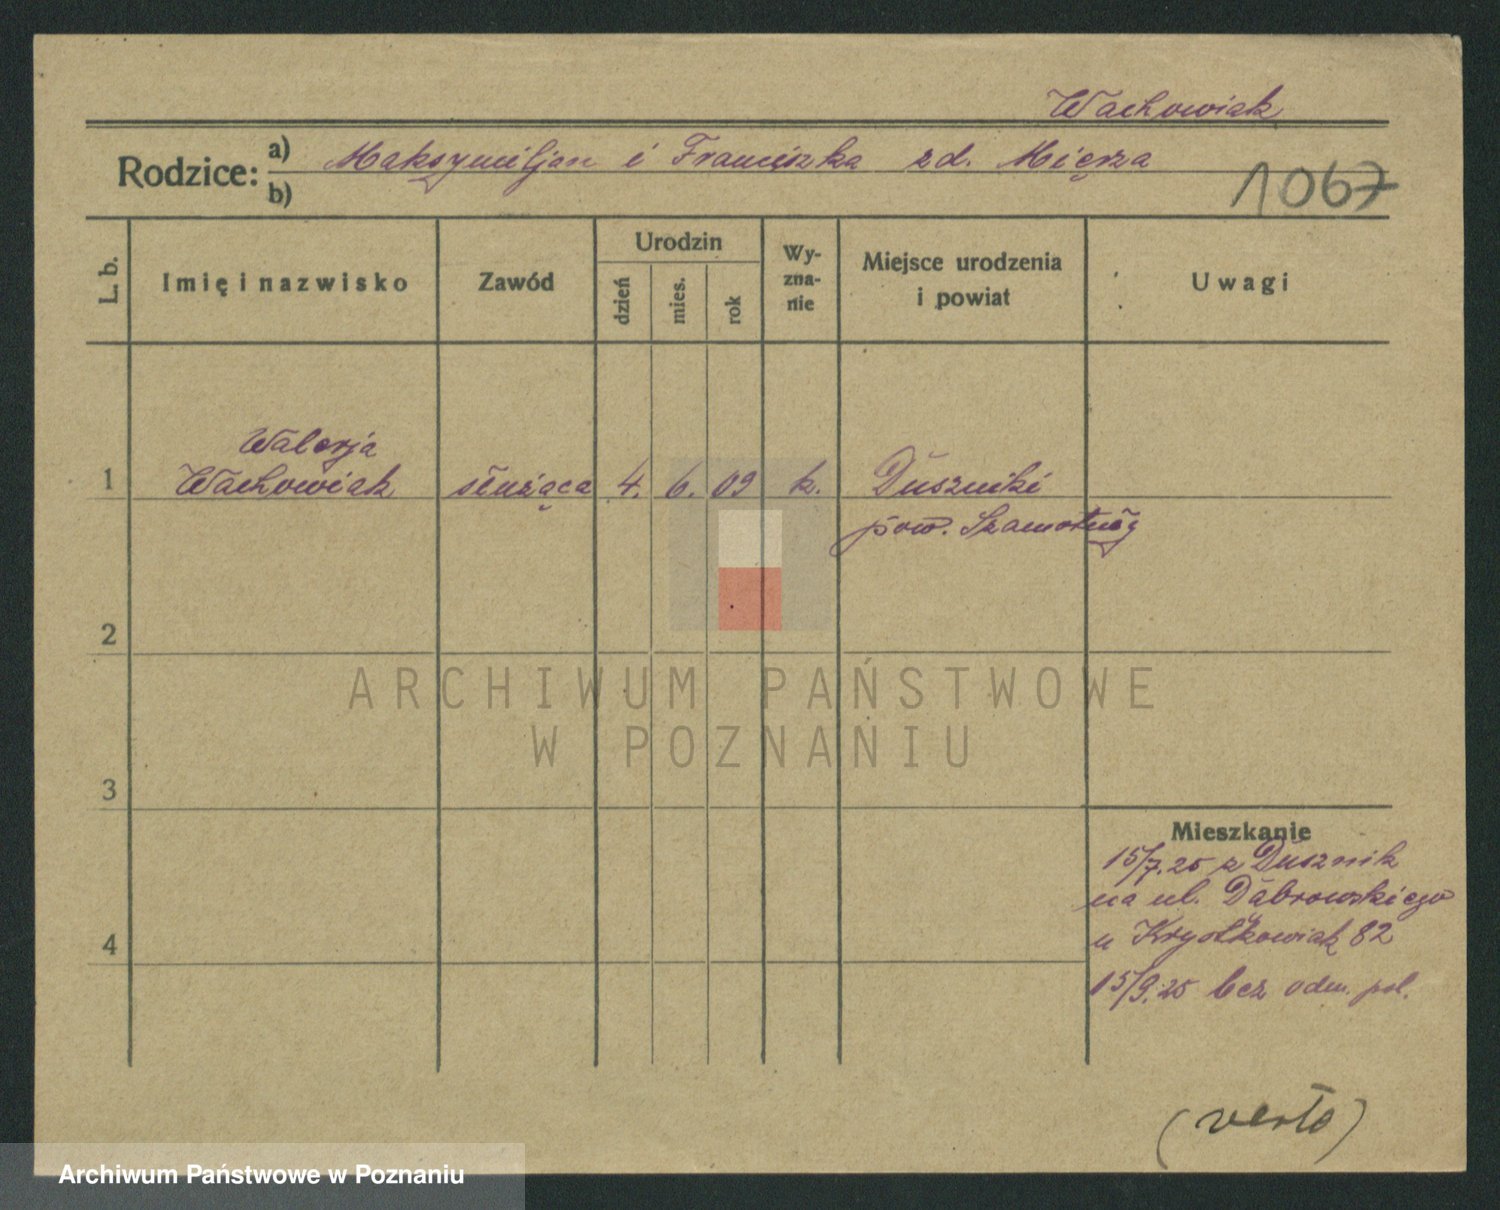 Wachowiak
Rodzice: a) Maksymiljan i Franciszka zd. Mięrza
b)
1067
L. b.
Imię i nazwisko
Zawód
Urodzin
dzień
mies.
rok
Wy-
zna-
nie
Miejsce urodzenia
i powiat
Uwagi
Walerja
1 Wachowiak służąca 4. 6. 09 k. Duszniki
pow. Szamotuły
2
3
4
Mieszkanie
15/7.25 z Dusznik
na ul. Dąbrowskiego
u Kryotkowiak 82
15/9.25 bez odm. pol.
(verte)
ARCHIWUM PAŃSTWOWE
W POZNANIU
Archiwum Państwowe w Poznaniu